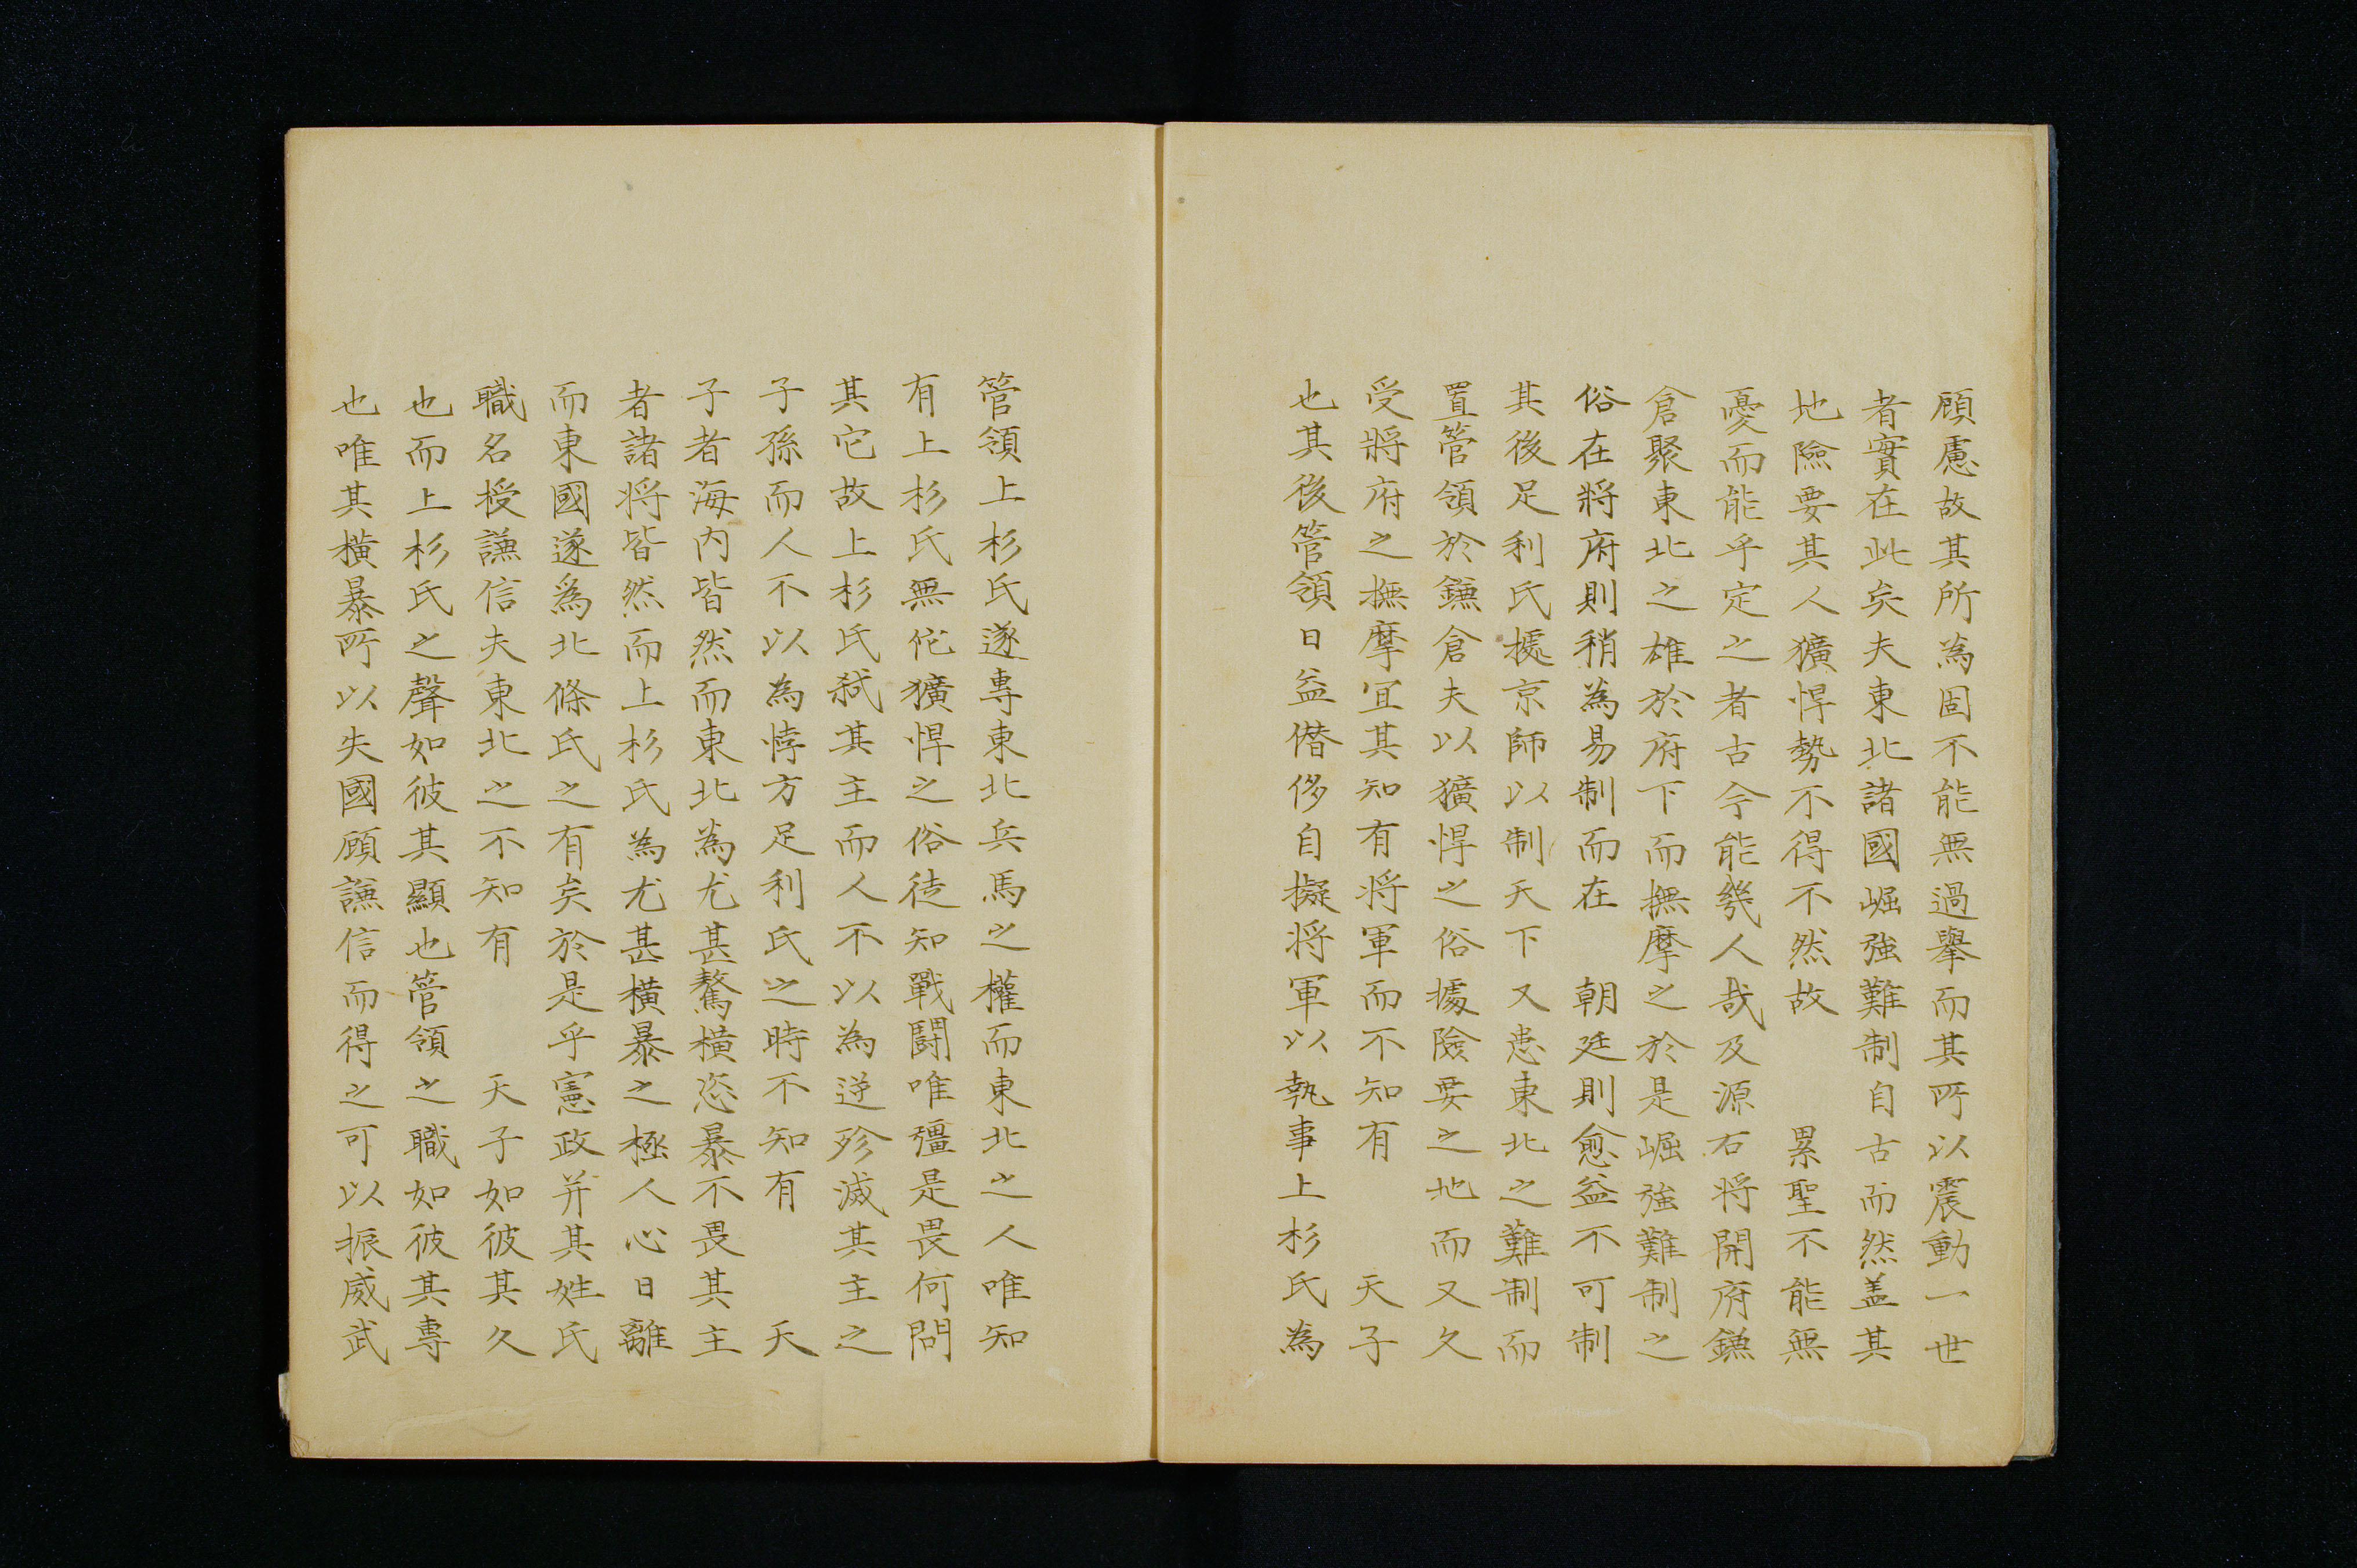 顧慮故其所為固不能無過擧而其所以震動一世
者實在此矣夫東北諸國崛強難制自古而然盖其
地險要其人獷悍勢不得不然故　累聖不能無
憂而能乎定之者古今能幾人哉及源右将開府鎌
倉聚東北之雄於府下而撫摩之於是崛強難制之
俗在將府則稍為易制而在　朝廷則愈益不可制
其後足利氏據京師以制天下又患東北之難制而
置管領於鎌倉夫以獷悍之俗據險要之地而又久
受將府之撫摩宜其知有将軍而不知有　天子
也其後管領日益僭侈自擬将軍以執事上杉氏為
管領上杉氏遂專東北兵馬之權而東北之人唯知
有上杉氏無佗獷悍之俗徒知戰鬪唯彊是畏何問
其它故上杉氏弑其主而人不以為逆殄滅其主之
子孫而人不以為悖方足利氏之時不知有　天
子者海内皆然而東北為尤甚驁橫恣暴不畏其主
者諸将皆然而上杉氏為尤甚橫暴之極人心日離
而東國遂爲北條氏之有矣於是乎憲政并其姓氏
職名授謙信夫東北之不知有　天子如彼其久
也而上杉氏之聲如彼其顯也管領之職如彼其專
也唯其橫暴所以失國顧謙信而得之可以振威武